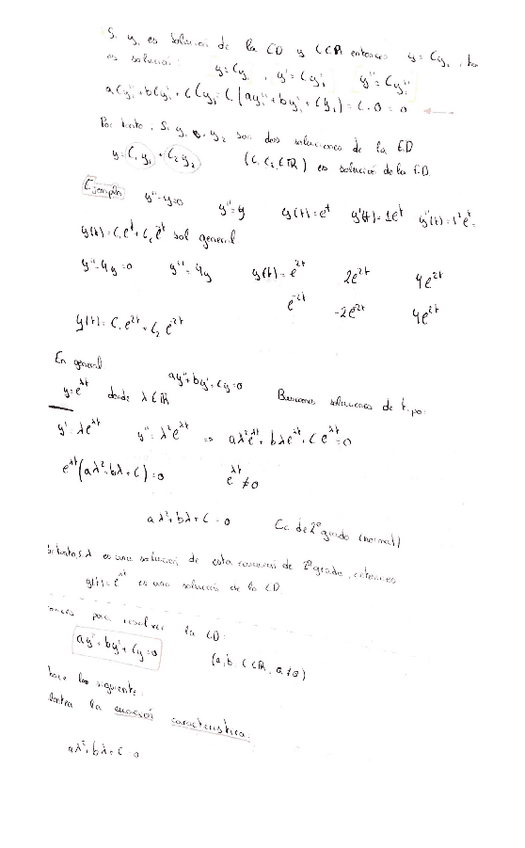 Si y₁ es solución de la ED y C∈ℝ entonces y = Cy₁, también
es solución: y = Cy₁, y' = Cy₁' y'' = Cy₁''
aCy₁'' + bCy₁' + cCy₁ = C(ay₁'' + by₁' + cy₁) = C·0 = 0
Por tanto, Si y₁ y₂ son dos soluciones de la ED
y = C₁y₁ + C₂y₂ (C₁, C₂ ∈ ℝ) es solución de la ED
Ejemplo y'' - y = 0 y'' = y y(t) = eᵗ y'(t) = 1eᵗ y''(t) = 1²eᵗ
y(t) = C₁eᵗ + C₂ sol general
y'' - 4y = 0 y'' = 4y y(t) = e²ᵗ 2e²ᵗ 4e²ᵗ
e⁻²ᵗ -2e²ᵗ 4e²ᵗ
y(t) = C₁e²ᵗ + C₂
En general ay'' + by' + cy = 0 Buscamos soluciones de tipo:
y = e^λt donde λ∈ℝ
y' = λe^λt y'' = λ²e^λt ⇒ aλ²e^λt + bλe^λt + c e^λt = 0
e^λt(aλ² + bλ + c) = 0 e^λt ≠ 0
aλ² + bλ + c = 0 Ec. de 2º grado (normal)
λ es una solución de esta ecuación de 2º grado, entonces
y(t) = e^λt es una solución de la ED
para resolver la ED:
ay'' + by' + cy = 0 (a, b, c ∈ ℝ, a ≠ 0)
hace lo siguiente:
la ecuación característica:
aλ² + bλ + c = 0